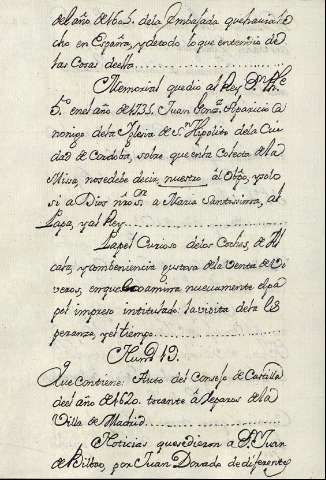 del año de 1605. dela Embajada que havia he
cho en España, y de todo lo que entendio de
las Cosas della
Memorial que dio al Rey Dn Phe
5.º en el año de 1735. Juan Gonz.z Aparicio Ca
nonigo de la Iglesia de Sn Hipolito dela Ciu
dad de Cordoba, sobre que enla Colecta de la
Misa, no se debe decir, nuestro al Obpo, y solo
si a Dios nro Sr a Maria Santissima, al
Papa, y al Rey
Papel Curioso delos Coches, de Al
cala, y combeniencia gustosa dela Venta de Vi
veros, en que examina nuevamente el pa
pel impreso intitulado: la visita de la Es
peranza, y el tiempo
Num.º 19.
Que Contiene: Auto del Consejo de Castilla
de el año de 1620. tocante â reparos de la
Villa de Madrid
Noticias que se dieron a Dn Juan
de Bilbao, por Juan Dorado de diferentes